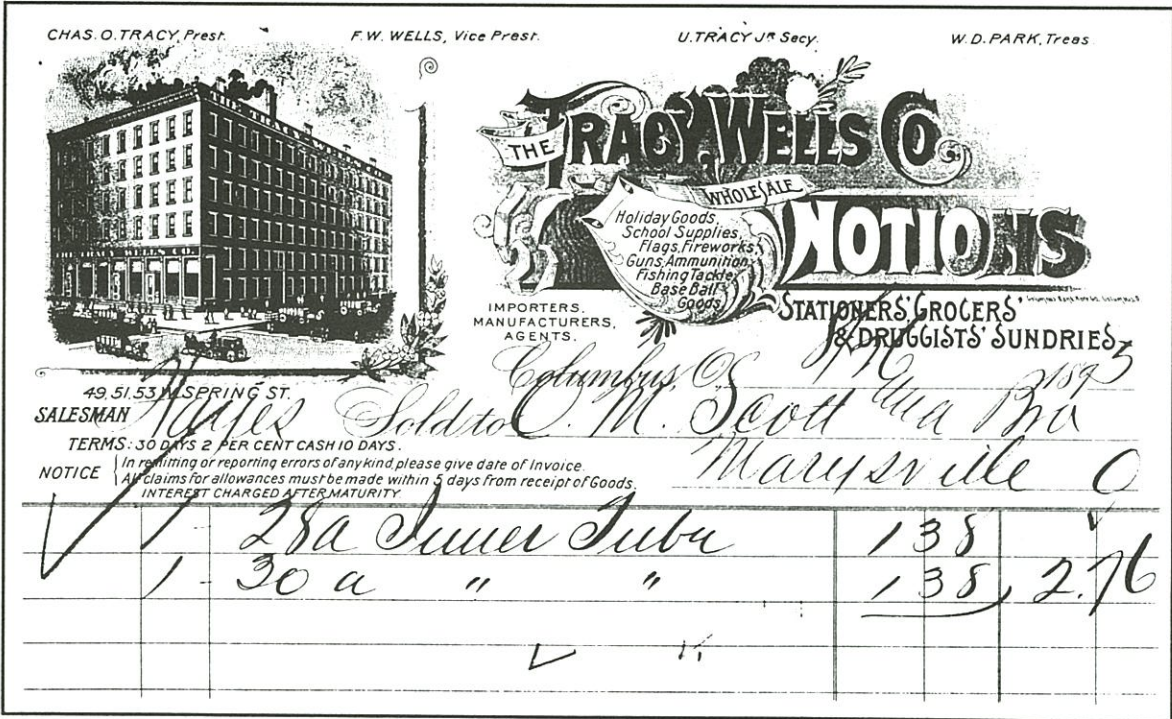 CHAS. O. TRACY, Prest.   F. W. WELLS, Vice Prest.   U. TRACY JR Secy.   W. D. PARK, Treas.
THE TRACY, WELLS Co.
WHOLESALE
NOTIONS
Holiday Goods,
School Supplies,
Flags, Fireworks,
Guns, Ammunition,
Fishing Tackle,
Base Ball
Goods
IMPORTERS,
MANUFACTURERS,
AGENTS.
STATIONERS', GROCERS'
& DRUGGISTS' SUNDRIES
49, 51, 53 W. SPRING ST.
Columbus, O. 1895
SALESMAN Hayes Sold to O. M. Scott Bro
Marysville O
TERMS: 30 DAYS 2 PER CENT CASH 10 DAYS.
NOTICE In remitting or reporting errors of any kind, please give date of Invoice.
All claims for allowances must be made within 5 days from receipt of Goods.
INTEREST CHARGED AFTER MATURITY.
1 28a Inner Tube 138
1 30 a " " 138 2.76